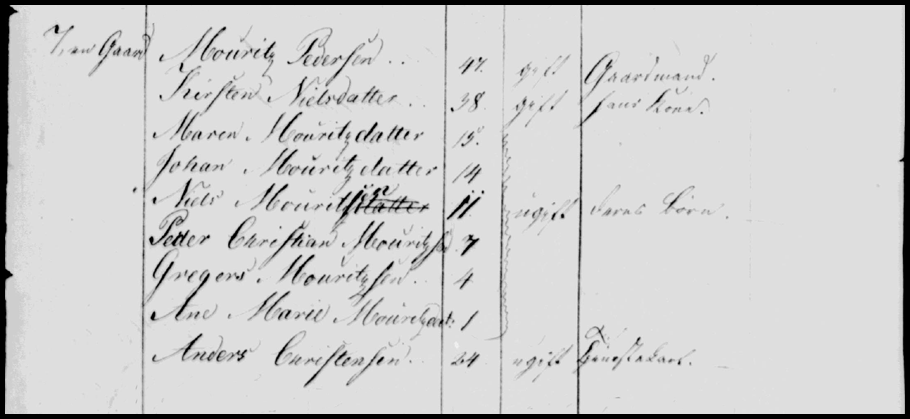 7, en Gaard Mouritz Pedersen .. 47. gift Gaardmand.
Kirsten Nielsdatter .. 38 gift hans Kone.
Maren Mouritzdatter 15.
Johan Mouritzdatter 14
Niels Mouritzsen 11 ugift deres Börn.
Petter Christian Mouritzsen 7
Gregers Mouritzsen .. 4
Ane Marie Mouritzdat: 1
Anders Christensen .. 24 ugift Tienestekarl.